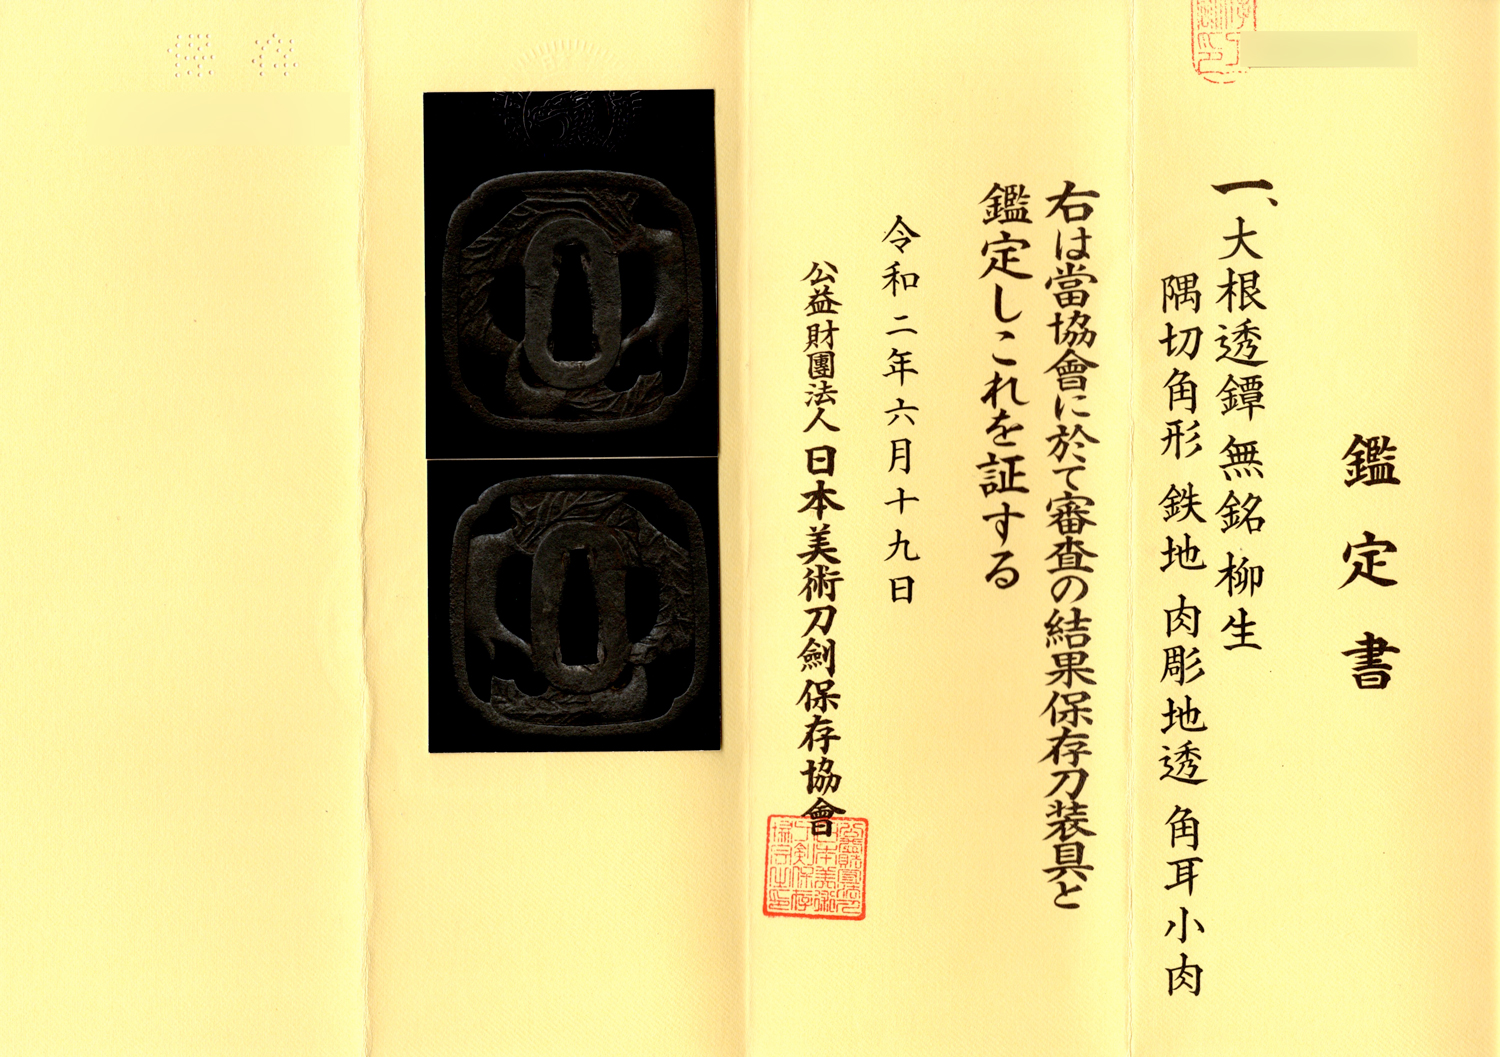 鑑定書
一、大根透鐔 無銘 柳生
隅切角形 鉄地 肉彫地透 角耳小肉
右は當協會に於て審査の結果保存刀装具と
鑑定しこれを証する
令和二年六月十九日
公益財團法人 日本美術刀劍保存協會
保存